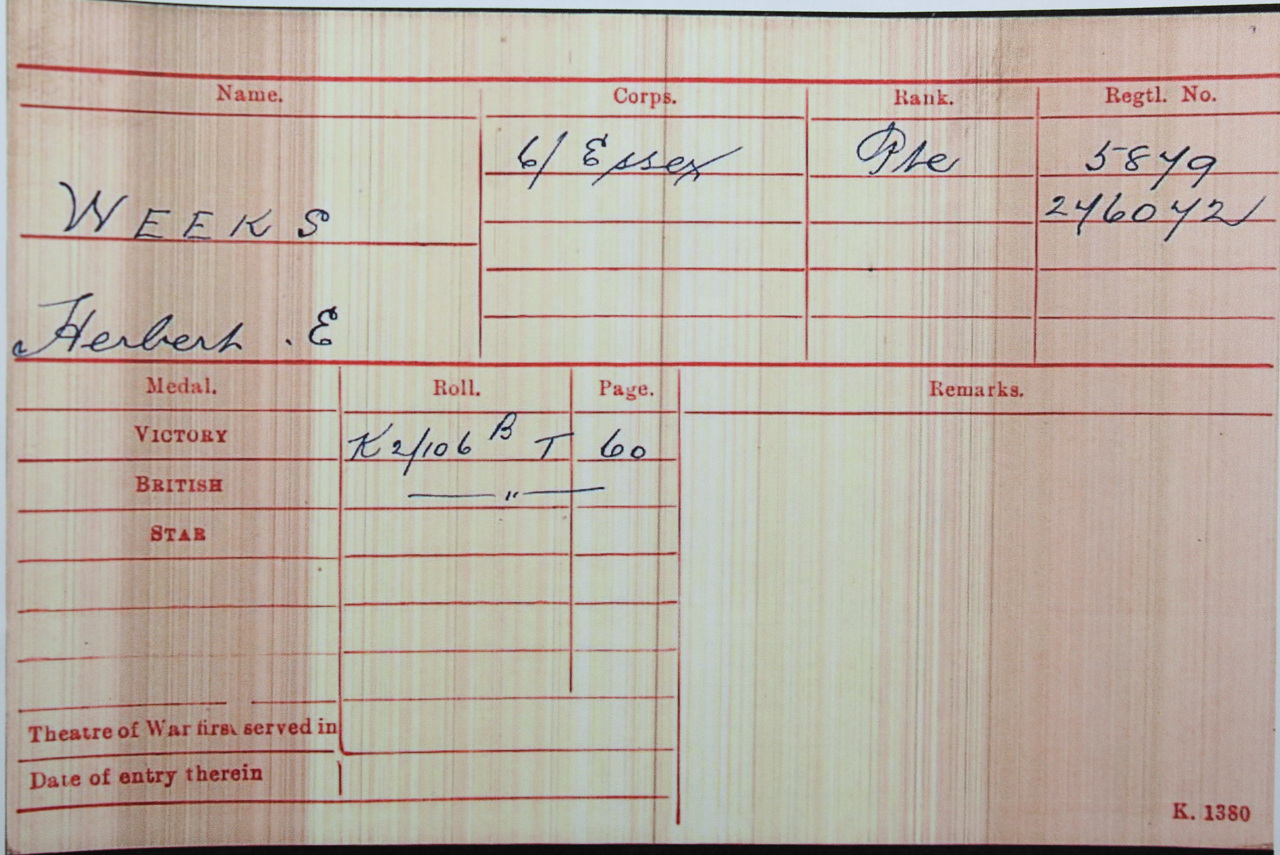 Name. Corps. Rank. Regtl. No.
6/ Essex Pte 5879
WEEKS 276072
Herbert . E
Medal. Roll. Page. Remarks.
VICTORY K2/106 B T 60
BRITISH — " —
STAR
Theatre of War first served in
Date of entry therein
K. 1380